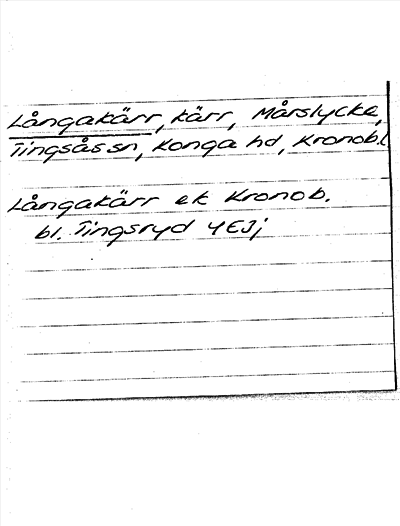 Långakärr, kärr, Mårslycke,
Tingsås sn, Konga hd, Kronob.l
Långakärr ek Kronob.
bl. Tingsryd 4E3j